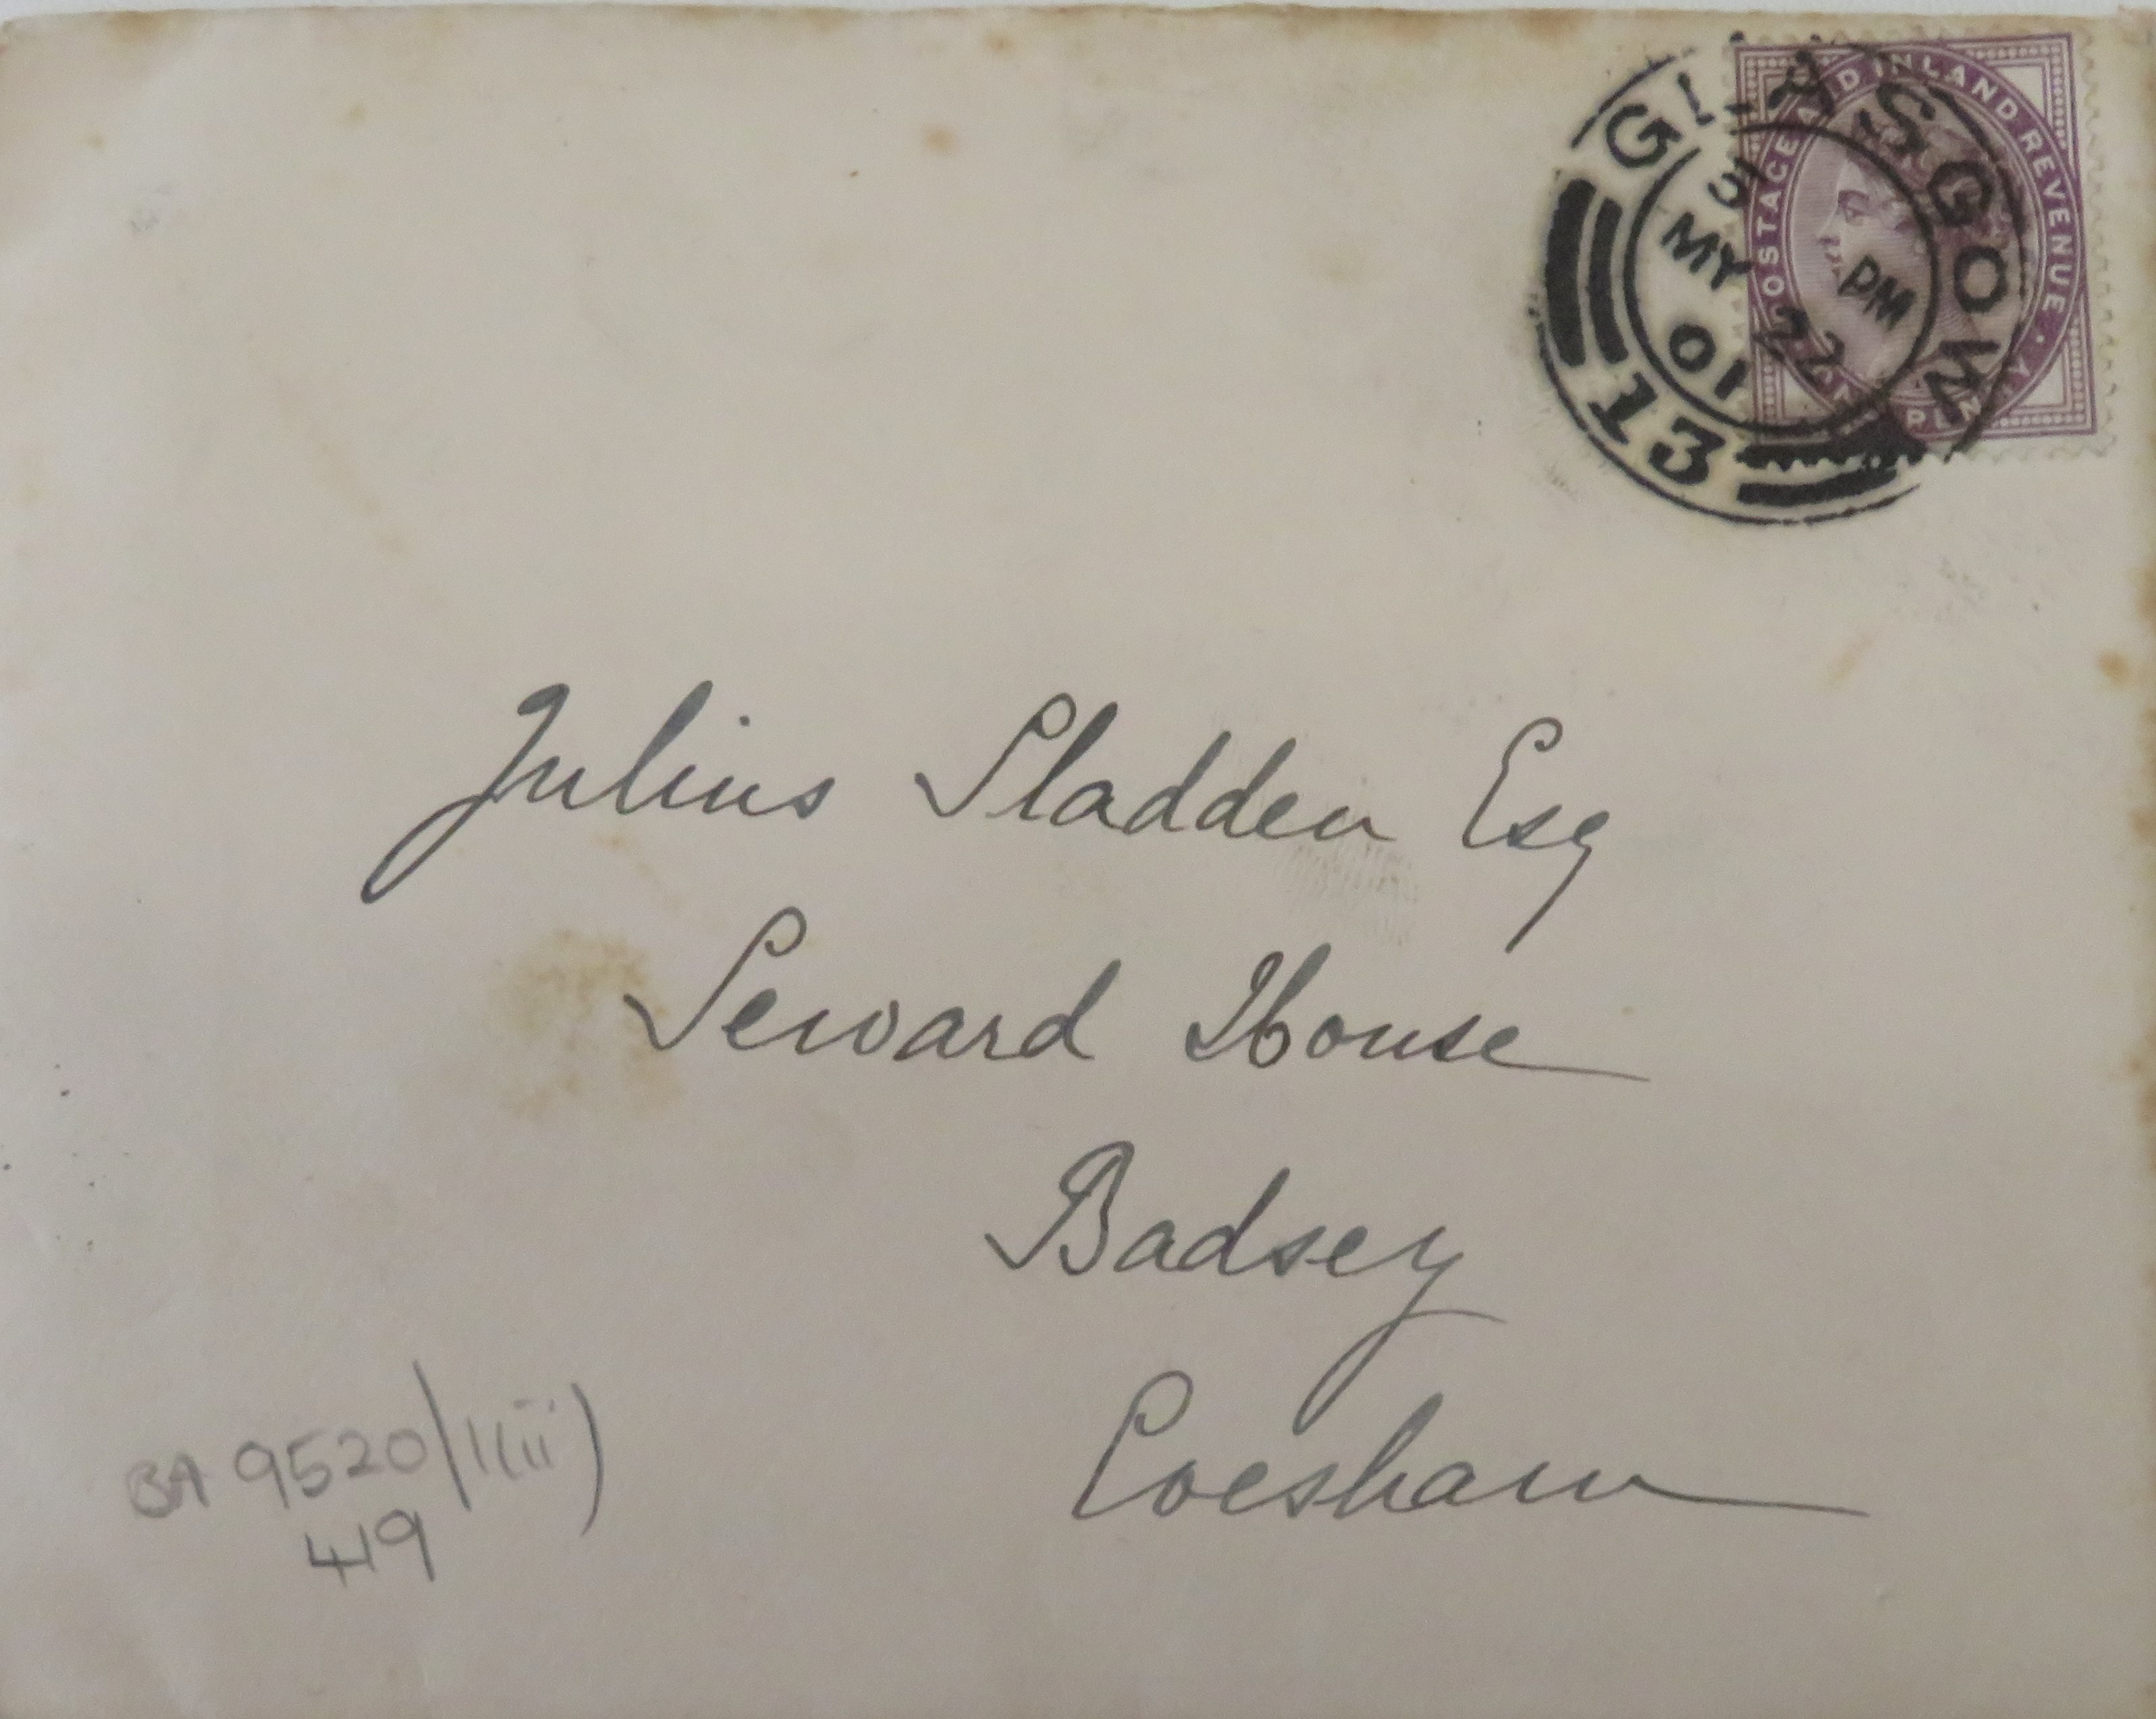 GLASGOW
MY PM
01 22
13
POSTAGE AND INLAND REVENUE
Julius Sladden Esq
Seward House
Badsey
Evesham
BA 9520/1(iii)
419